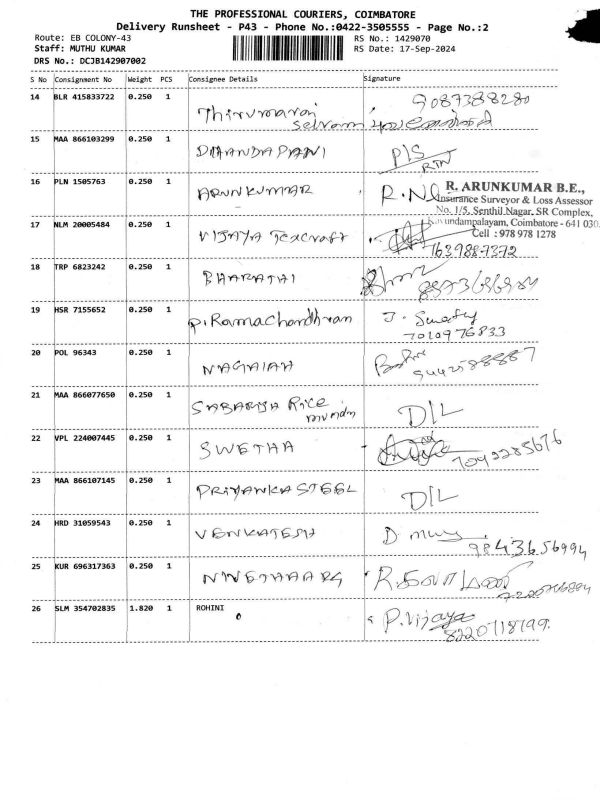 THE PROFESSIONAL COURIERS, COIMBATORE
Delivery Runsheet - P43 - Phone No.:0422-3505555 - Page No.:2
Route: EB COLONY-43 RS No.: 1429070
Staff: MUTHU KUMAR RS Date: 17-Sep-2024
DRS No.: DCJB142907002
S No Consignment No Weight PCS Consignee Details Signature
14 BLR 415833722 0.250 1 Thirumarai Selvam 9087388280
15 MAA 866103299 0.250 1 DHANDAPANI P/S RTN
16 PLN 1505763 0.250 1 ARUNKUMAR R.
R. ARUNKUMAR B.E.,
Insurance Surveyor & Loss Assessor
No. 1/5, Senthil Nagar, SR Complex,
Kavundampalayam, Coimbatore - 641 030.
Cell : 978 978 1278
17 NLM 20005484 0.250 1 VIJAYA Texcraft 7639887372
18 TRP 6823242 0.250 1 BHARATHI
19 HSR 7155652 0.250 1 P. Ramachandhran J. Swathy
7010976833
20 POL 96343 0.250 1 NAGAIAH 9442588887
21 MAA 866077650 0.250 1 SABARISH Rice mundy D/L
22 VPL 224007445 0.250 1 SWETHA 7092285676
23 MAA 866107145 0.250 1 PRIYANKA STEEL D/L
24 HRD 31059543 0.250 1 VENKATESH D
9843656994
25 KUR 696317363 0.250 1 R.
26 SLM 354702835 1.820 1 ROHINI P. Vijaya
8220718799.